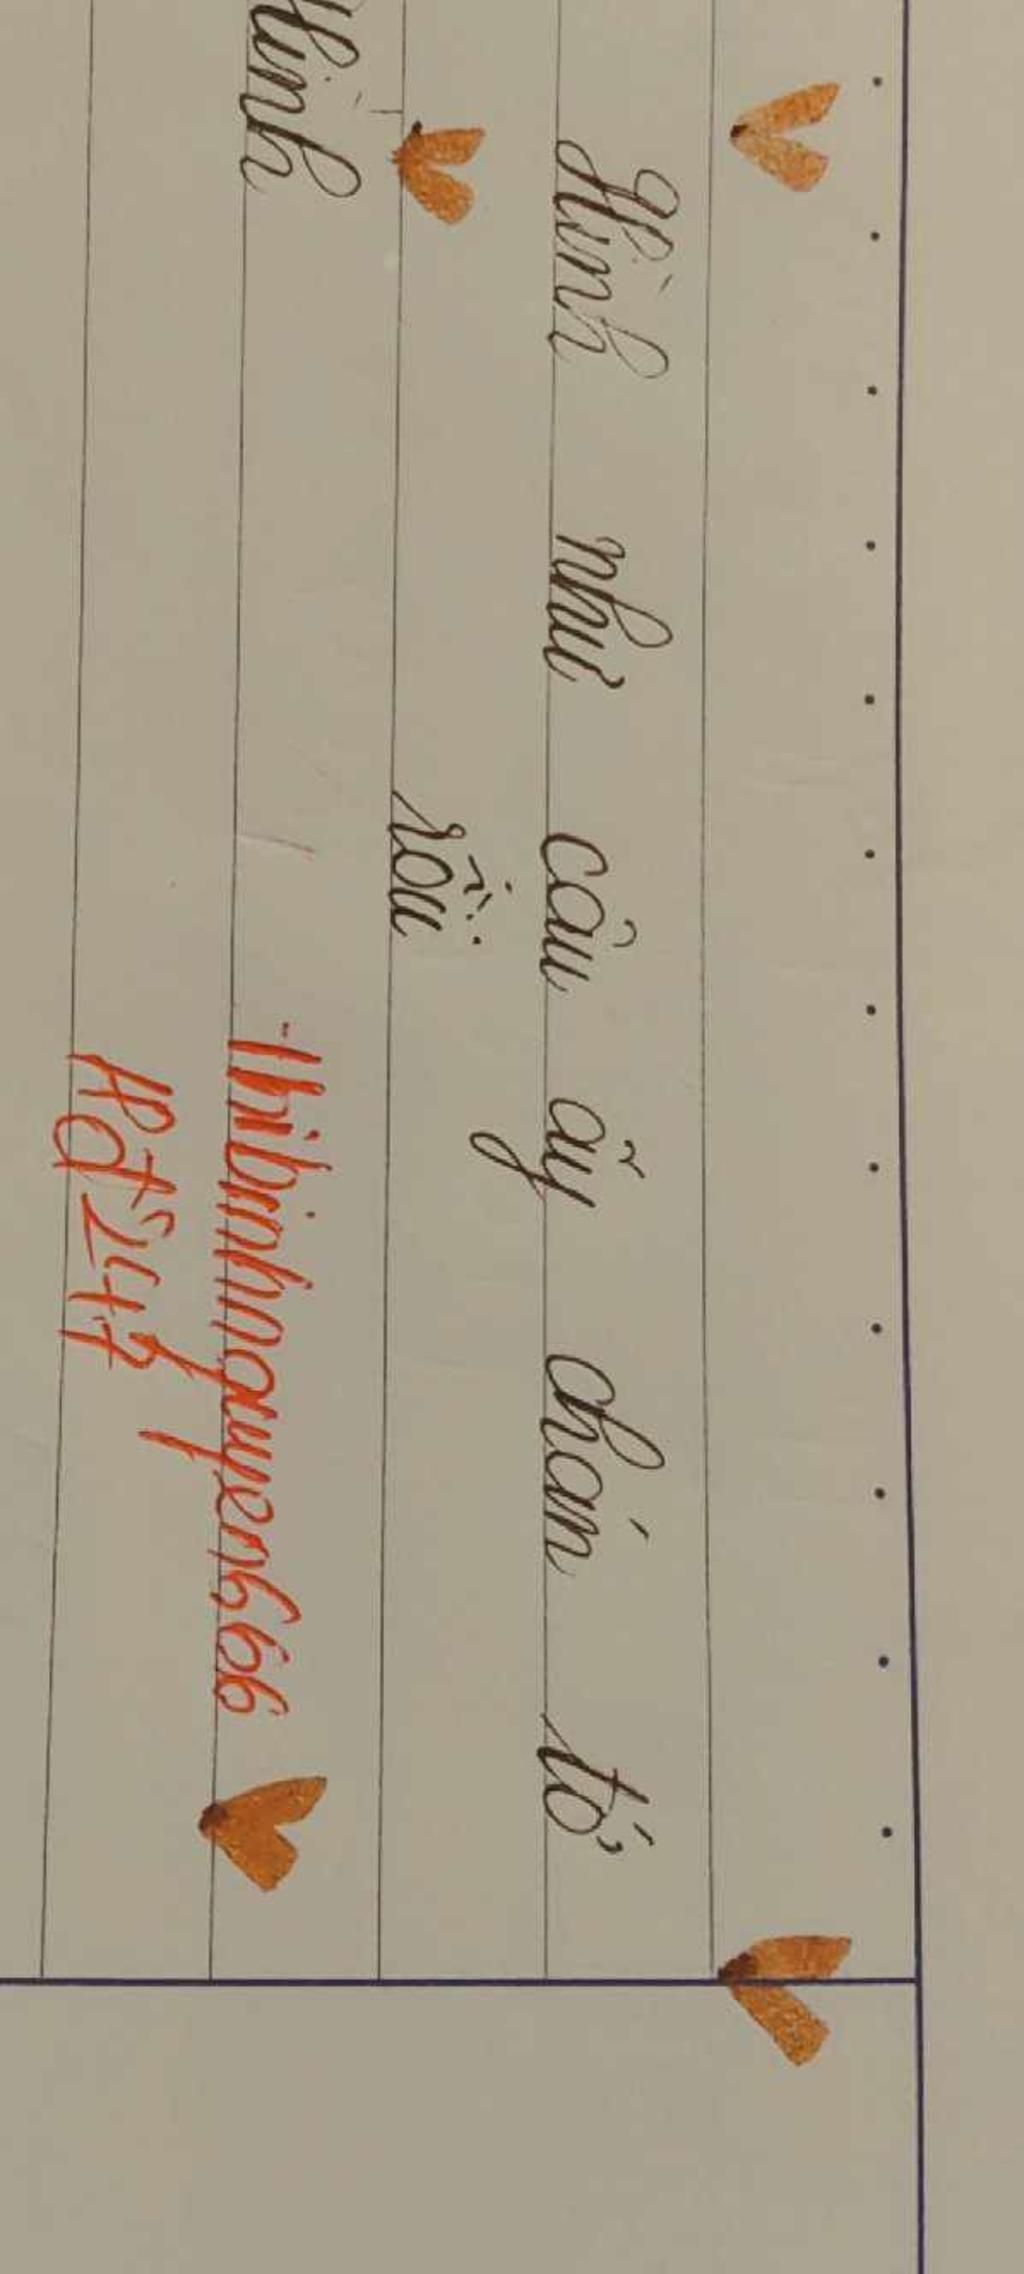 Hình như câu ấy chán tớ
rồi
Hình -thibinhnguyen666